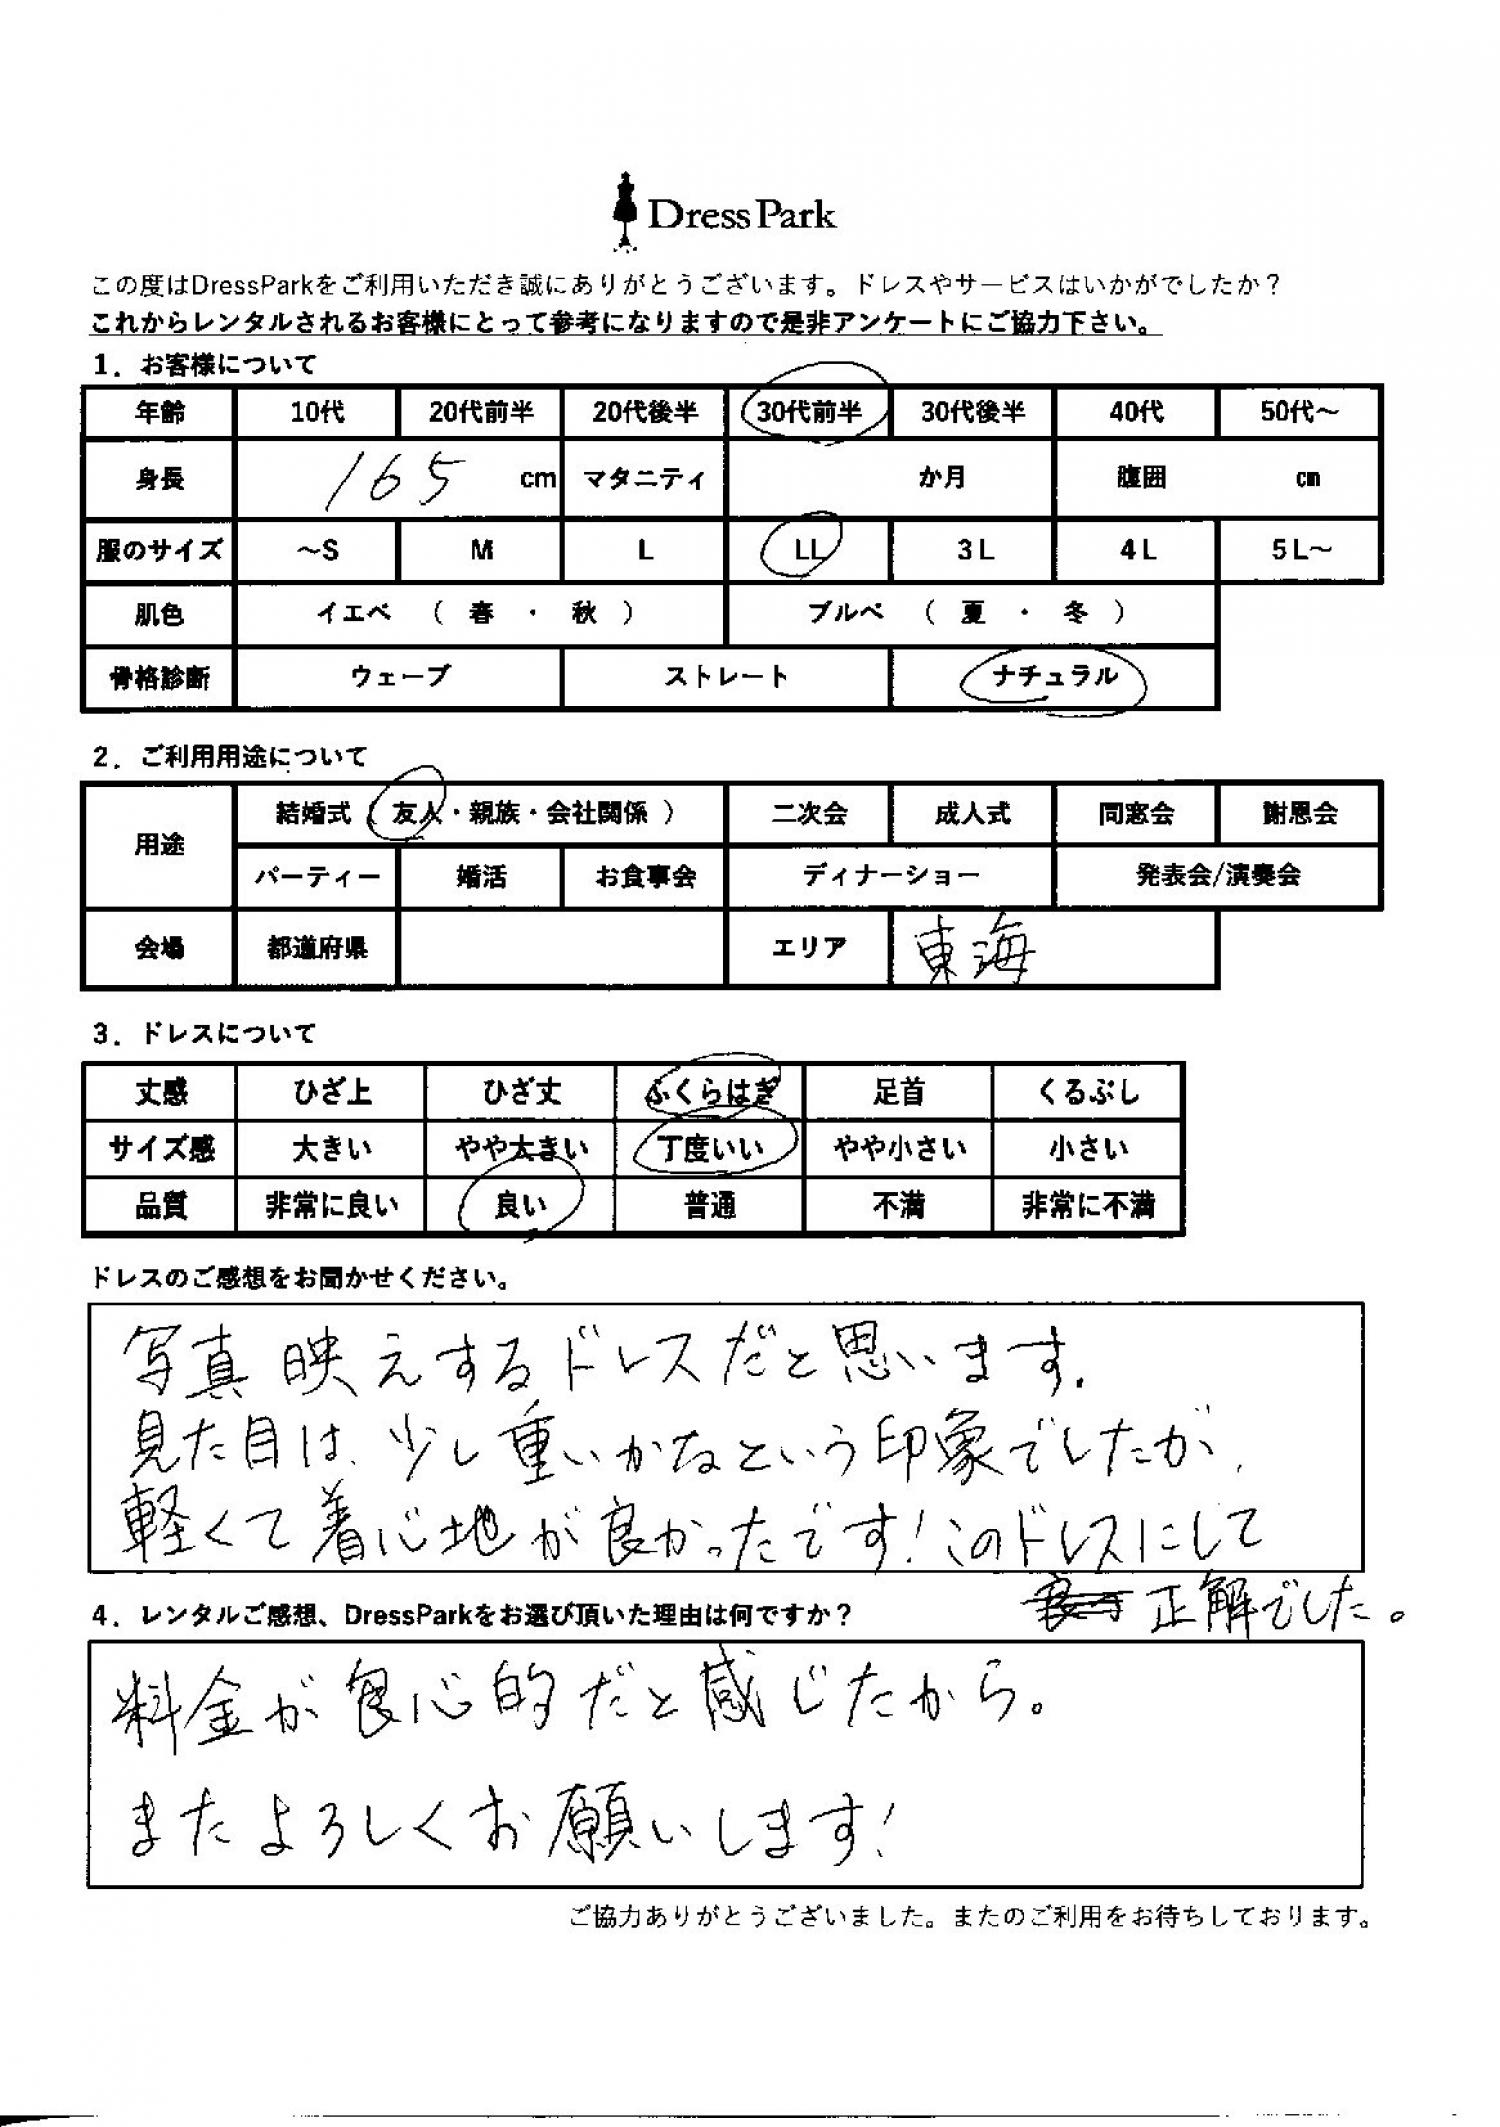 DressPark
この度はDressParkをご利用いただき誠にありがとうございます。ドレスやサービスはいかがでしたか？
これからレンタルされるお客様にとって参考になりますので是非アンケートにご協力下さい。
1．お客様について
年齢 10代 20代前半 20代後半 30代前半 30代後半 40代 50代～
身長 165 cm マタニティ か月 腹囲 cm
服のサイズ ～S M L LL 3L 4L 5L～
肌色 イエベ （ 春 ・ 秋 ） ブルベ （ 夏 ・ 冬 ）
骨格診断 ウェーブ ストレート ナチュラル
2．ご利用用途について
用途 結婚式（ 友人・親族・会社関係 ） 二次会 成人式 同窓会 謝恩会
パーティー 婚活 お食事会 ディナーショー 発表会/演奏会
会場 都道府県 エリア 東海
3．ドレスについて
丈感 ひざ上 ひざ丈 ふくらはぎ 足首 くるぶし
サイズ感 大きい やや大きい 丁度いい やや小さい 小さい
品質 非常に良い 良い 普通 不満 非常に不満
ドレスのご感想をお聞かせください。
写真映えするドレスだと思います.
見た目は、少し重いかなという印象でしたが、
軽くて着心地が良かったです!このドレスにして
正解でした。
4．レンタルご感想、DressParkをお選び頂いた理由は何ですか？
料金が良心的だと感じたから。
またよろしくお願いします!
ご協力ありがとうございました。またのご利用をお待ちしております。